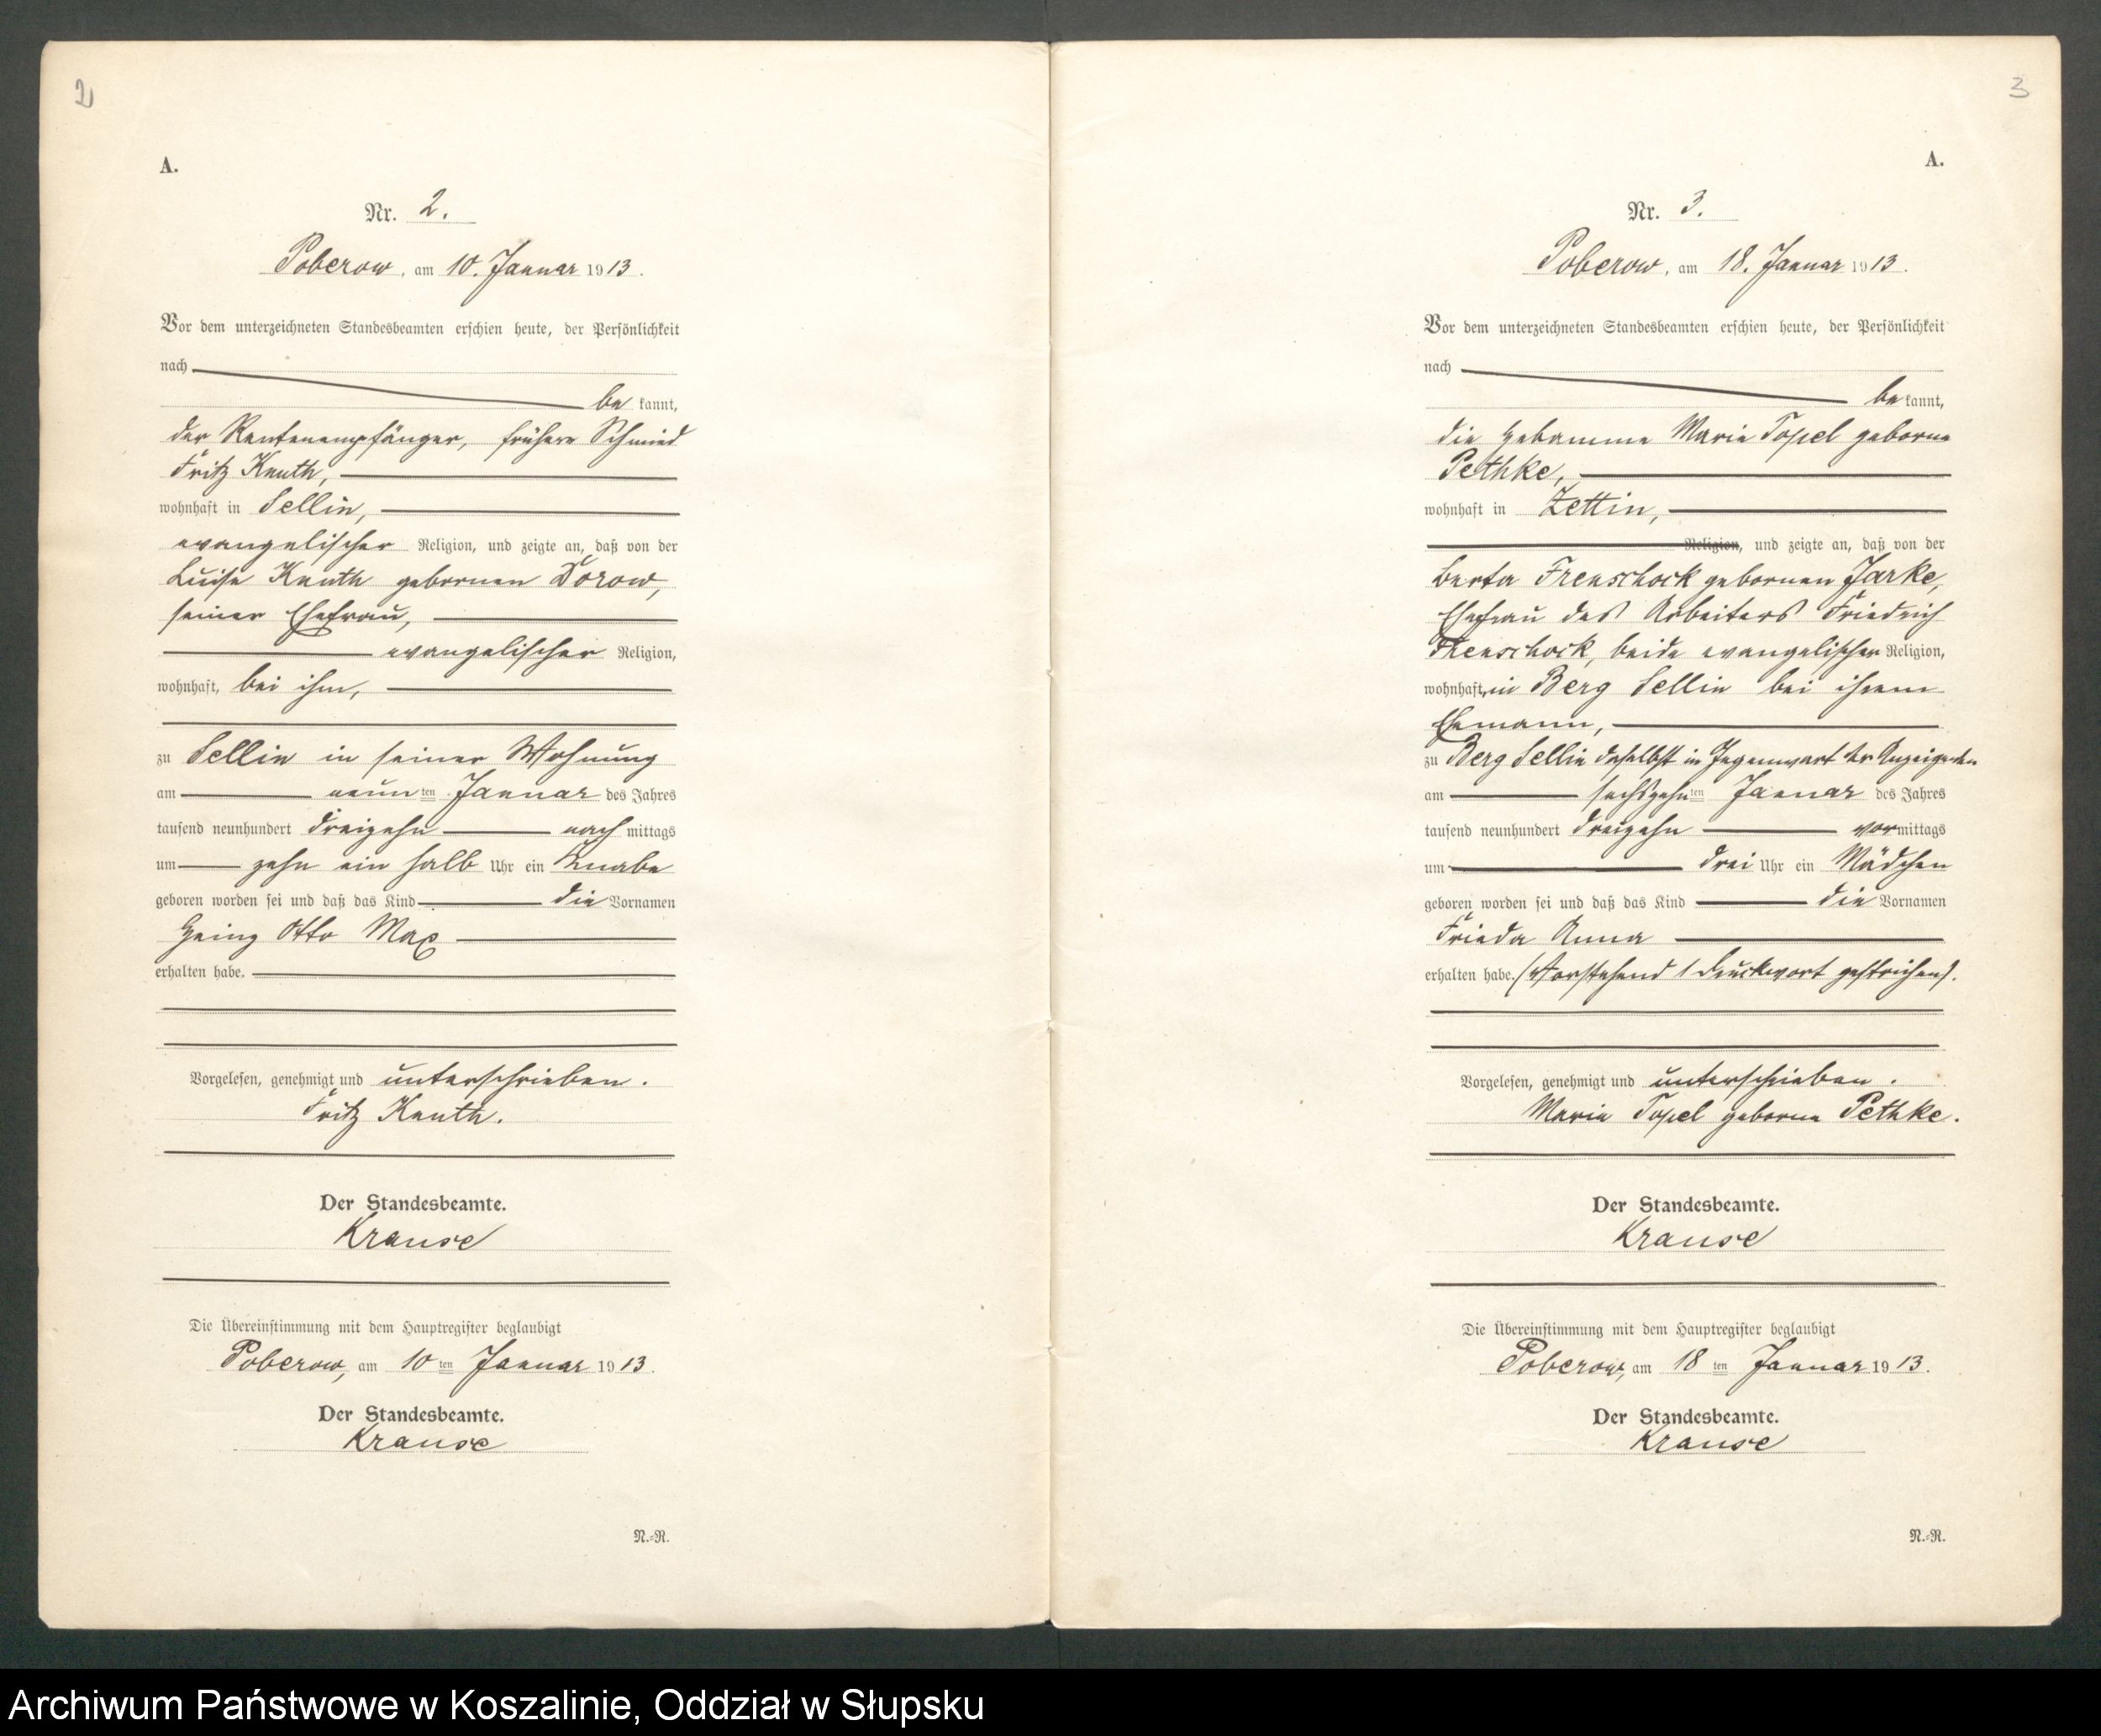 2
A.
Nr. 2.
Poberow, am 10. Januar 1913.
Vor dem unterzeichneten Standesbeamten erschien heute, der Persönlichkeit
nach
be kannt,
der Rentenempfänger, frühere Schmied
Fritz Knuth,
wohnhaft in Sellin,
evangelischer Religion, und zeigte an, daß von der
Luise Knuth gebornen Dorow,
seiner Ehefrau,
evangelischer Religion,
wohnhaft, bei ihm,
zu Sellin in seiner Wohnung
am neun ten Januar des Jahres
tausend neunhundert dreizehn nach mittags
um zehn ein halb Uhr ein Knabe
geboren worden sei und daß das Kind die Vornamen
Heinz Otto Max
erhalten habe.
Vorgelesen, genehmigt und unterschrieben.
Fritz Knuth.
Der Standesbeamte.
Krause
Die Übereinstimmung mit dem Hauptregister beglaubigt
Poberow, am 10 ten Januar 1913.
Der Standesbeamte.
Krause
N.-R.
3
A.
Nr. 3.
Poberow, am 18. Januar 1913.
Vor dem unterzeichneten Standesbeamten erschien heute, der Persönlichkeit
nach
be kannt,
die Hebamme Marie Topel geborne
Pethke,
wohnhaft in Zettin,
Religion, und zeigte an, daß von der
Berta Frenschock gebornen Jarke,
Ehefrau des Arbeiters Friedrich
Frenschock, beide evangelischer Religion,
wohnhaft, in Berg Sellin bei ihrem
Ehemann,
zu Berg Sellin daselbst in Gegenwart der Anzeigenden
am sechszehn ten Januar des Jahres
tausend neunhundert dreizehn vormittags
um drei Uhr ein Mädchen
geboren worden sei und daß das Kind die Vornamen
Frieda Anna
erhalten habe. (Vorstehend 1 Druckwort gestrichen).
Vorgelesen, genehmigt und unterschrieben.
Marie Topel geborne Pethke.
Der Standesbeamte.
Krause
Die Übereinstimmung mit dem Hauptregister beglaubigt
Poberow, am 18 ten Januar 1913.
Der Standesbeamte.
Krause
N.-R.
Archiwum Państwowe w Koszalinie, Oddział w Słupsku